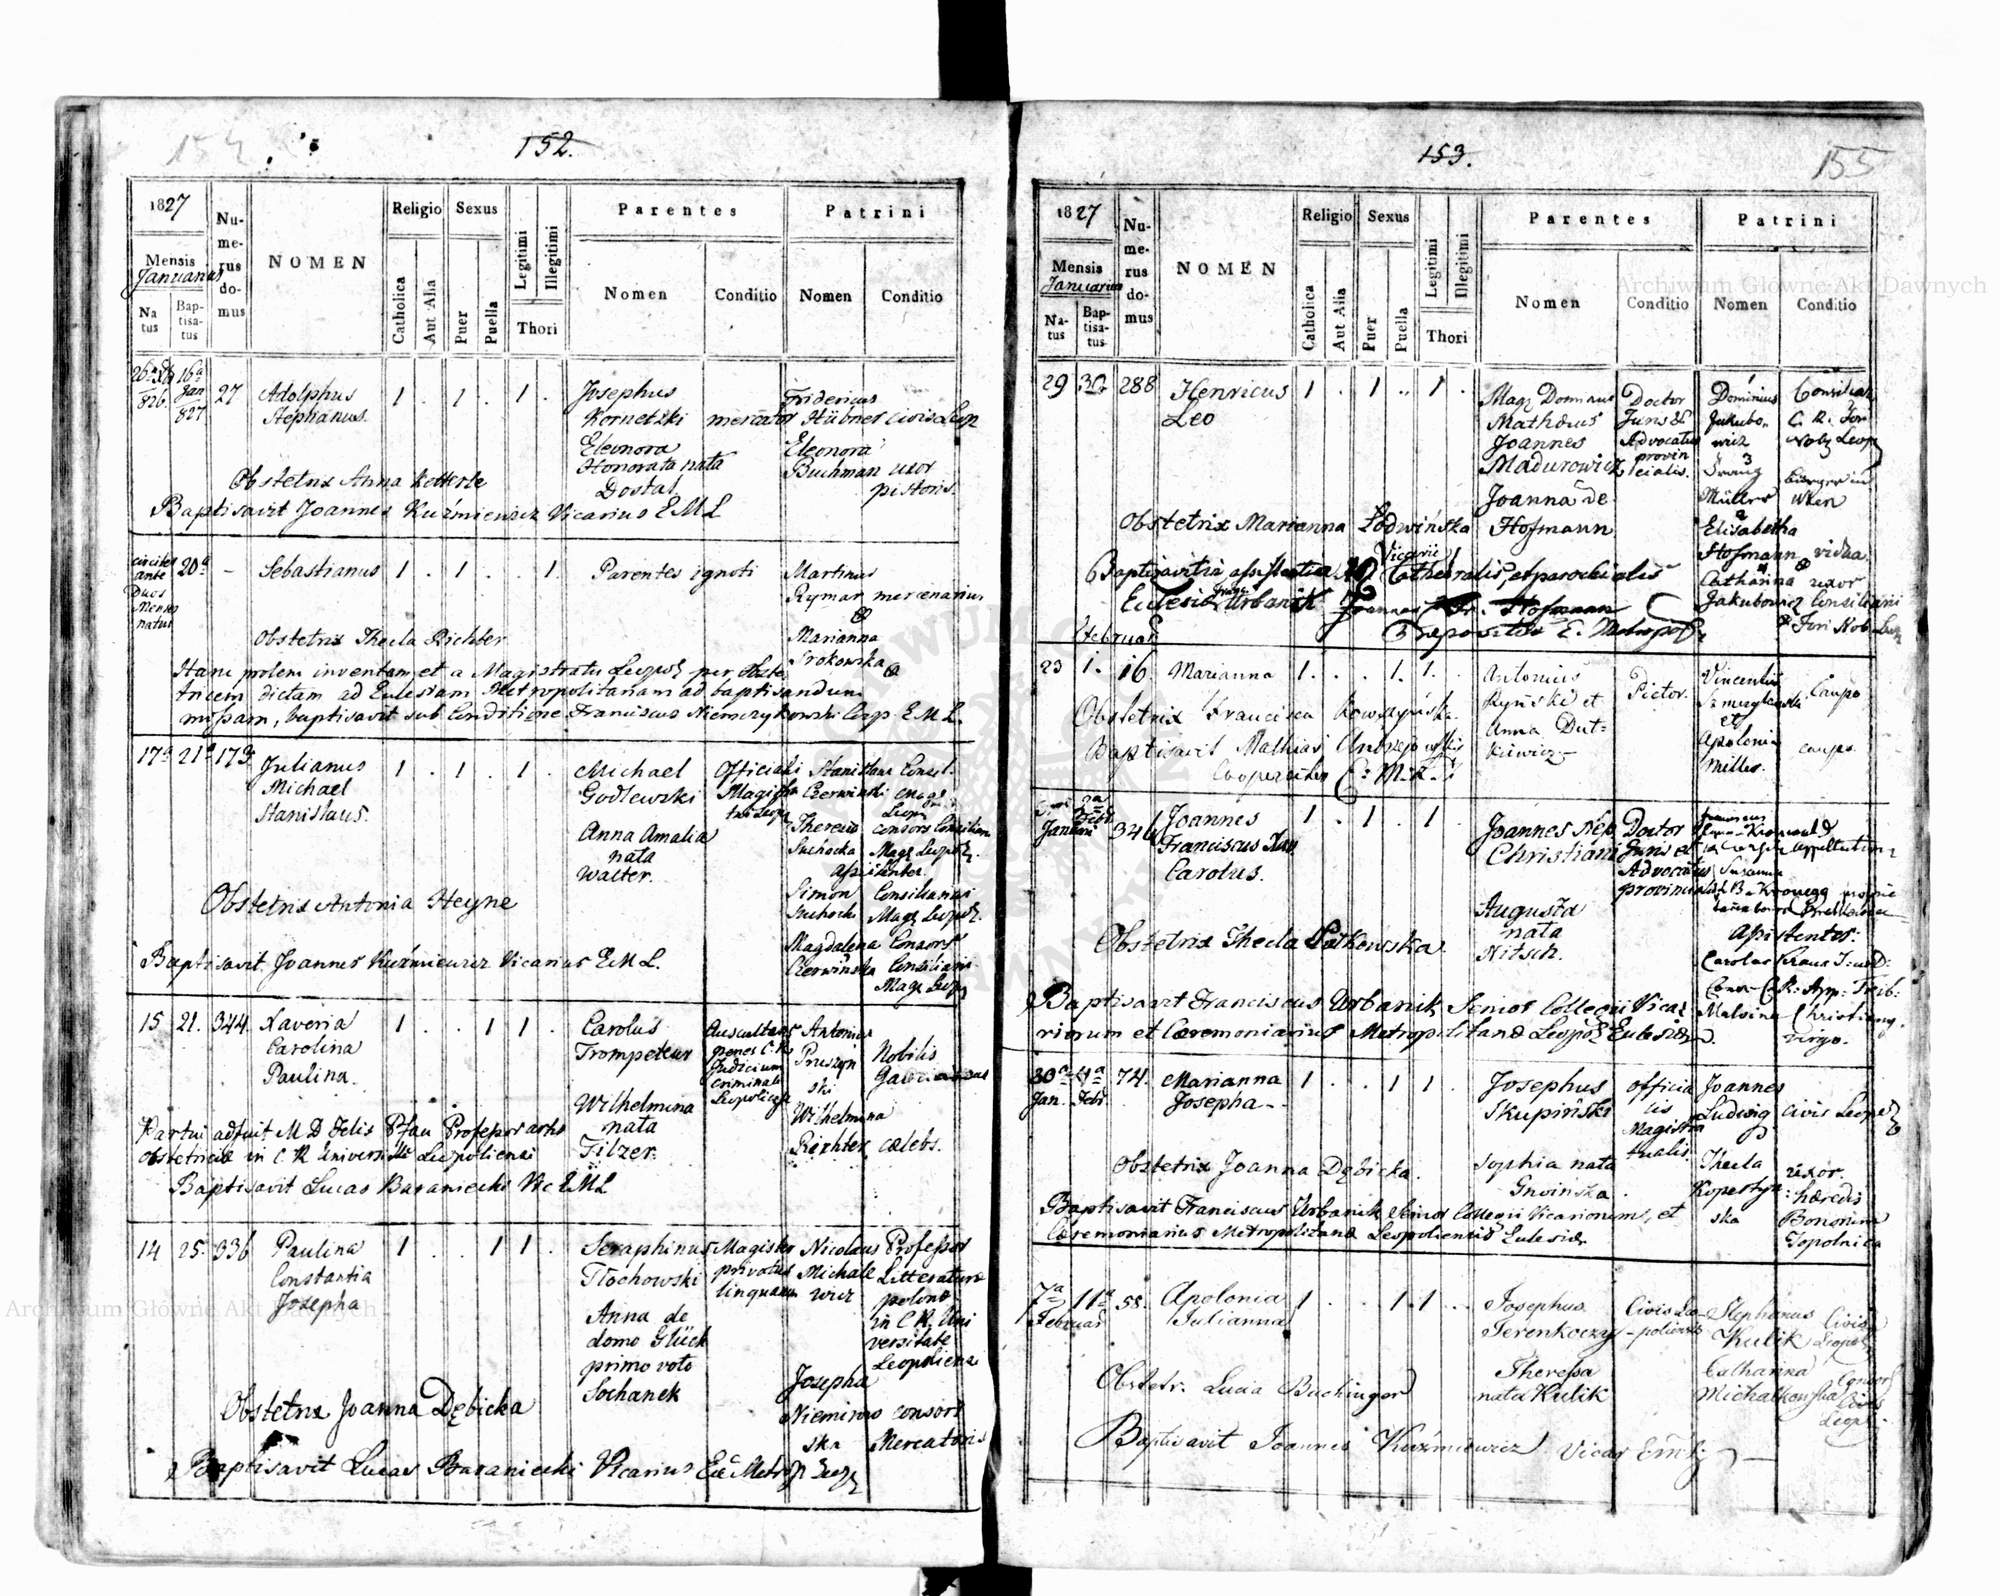 152.
1827
Numerus domus
NOMEN
Religio
Sexus
Legitimi
Illegitimi
Parentes
Patrini
Mensis
Januarius
Natus
Baptisatus
Catholica
Aut Alia
Puer
Puella
Thori
Nomen
Conditio
Nomen
Conditio
16a Jan 827
27
Adolphus
Stephanus.
1 . 1 . 1 .
Josephus
Kornetzki mercator
Eleonora
Honorata nata
Dostal
Fridericus
Hübner civis Leop
Eleonora
Buchman uxor
pistoris.
Obstetrix Anna Ketterle
Baptisavit Joannes Kuźmiewicz Vicarius EML
circiter
ante
Duos
Menses
natus
20a
-
Sebastianus
1 . 1 . . 1.
Parentes ignoti
Martinus
Rymar mercenarius
Marianna
Srokowska
Obstetrix Thecla Richter
Hanc prolem inventam et a Magistratu Leopol per Obste
tricem dictam ad Ecclesiam Metropolitanam ad baptisandum
missam, baptisavit sub Conditione Franciscus Niemczykowski Coop. E M L.
17a 21a 173
Julianus
Michael
Stanislaus.
1 . 1 . 1 .
Michael
Godlewski
Anna Amalia
nata
Walter.
Officialis
Magis
trat Leop
Stanislaus Consil.
Czerwinski Mag
Leop
Theresia consors Consiliarii
Suchocka Mag Leopol.
assistentes.
Simon Consiliarius
Suchocki Mag Leopol.
Magdalena Consors
Czerwinska Consiliarii
Mag Leop
Obstetrix Antonia Heyne
Baptisavit Joannes Kuźmiewicz Vicarius EML.
15 21. 344.
Xaveria
Carolina
Paulina.
1 . . 1 1 .
Carolus
Trompeteur
Wilhelmina
nata
Filzer.
Auscultans
penes C. R.
Judicium
Criminale
Leopoliense
Antonius
Pruszyn
ski
Nobilis
Galicianus
Wilhelmina
Richter cælebs.
Partui adfuit M D Felix Pfau Professor artis
obstetriciæ in C. R. Universitate Leopoliensi
Baptisavit Lucas Baraniecki Vic EML
14 25. 336
Paulina
Constantia
Josepha
1 . . 1 1 .
Seraphinus
Tłochowski
Anna de
domo Glück
primo voto
Sochanek
Magister
privatus
linguarum
Nicolaus
Michale
wicz
Professor
Litteraturæ
polonæ
in C R. Uni
versitate
Leopoliensi
Josepha
Niemirow consors
ska Mercatoris
Obstetrix Joanna Dębicka
Baptisavit Lucas Baraniecki Vicarius Ecc Metrop Leop
153.
155
1827
Numerus domus
NOMEN
Religio
Sexus
Legitimi
Illegitimi
Parentes
Patrini
Mensis
Januarius
Natus
Baptisatus
Catholica
Aut Alia
Puer
Puella
Thori
Nomen
Conditio
Nomen
Conditio
29 30 288
Henricus
Leo
1 . 1 .. 1 .
Mag Dominus
Mathæus
Joannes
Madurowicz
Joanna de
Hofmann
Doctor
Juris et
Advocatus
provin
cialis.
Dominus
Jakubo-
wicz
Müller
Wien
Elisabetha
Hofmann vidua.
Catharina uxor
Jakubowicz Consiliarii
Fori Nob.
Obstetrix Marianna Łodwińska
Vicarii
Cathedralis et parochialis
Ecclesiæ Urbanik
Februar
23 1. 16.
Marianna
1. . . 1. 1. .
Antonius
Ryński et
Anna Dut-
kiewicz.
Pictor.
Vincentius
et
Apolonia
Miller.
Caupo
caupo.
Obstetrix Francisca
Baptisavit Mathias
Cooperator E. M. L.
Januarii
2a Febr
346
Joannes
Franciscus Xav
Carolus.
1 . 1 . 1 .
Joannes Nep
Christiani
Augusta
nata
Nitsch.
Doctor
Juris et
Advocatus
provincialis
Susanna
Assistentes:
Carolus Kraus
Malvina Christiani
virgo.
Obstetrix Thecla Łatkowska.
Baptisavit Franciscus Urbanik Senior Collegii Vica
riorum et Cæremoniarius Metropolitanæ Leopol Ecclesiæ.
30a 4a 74.
Jan. Febr
Marianna
Josepha
1 . . 1 1 .
Josephus
Skupiński
Sophia nata
Gnoińska.
officia
lis
Magistra
tualis.
Joannes
Ludwig civis Leopol
Thecla uxor
Kopestyn hæredis
ska Bonorum
Topolnica
Obstetrix Joanna Dębicka.
Baptisavit Franciscus Urbanik Senior Collegii Vicariorum, et
Cæremoniarius Metropolitanæ Leopoliensis Ecclesiæ
7a 11a 58.
Februar
Apolonia
Julianna
1 . . 1. 1 . .
Josephus
Terenkoczy
Theressa
nata Kulik
Civis Leo-
poliensis
Stephanus
Kulik
Civis
Leopol
Catharina
Michalkowska
Consors
Civis
Leopol.
Obstetr. Lucia Buchinger
Baptisavit Joannes Kuźmiewicz Vicar
Archiwum Główne Akt Dawnych
Archiwum Główne Akt Dawnych